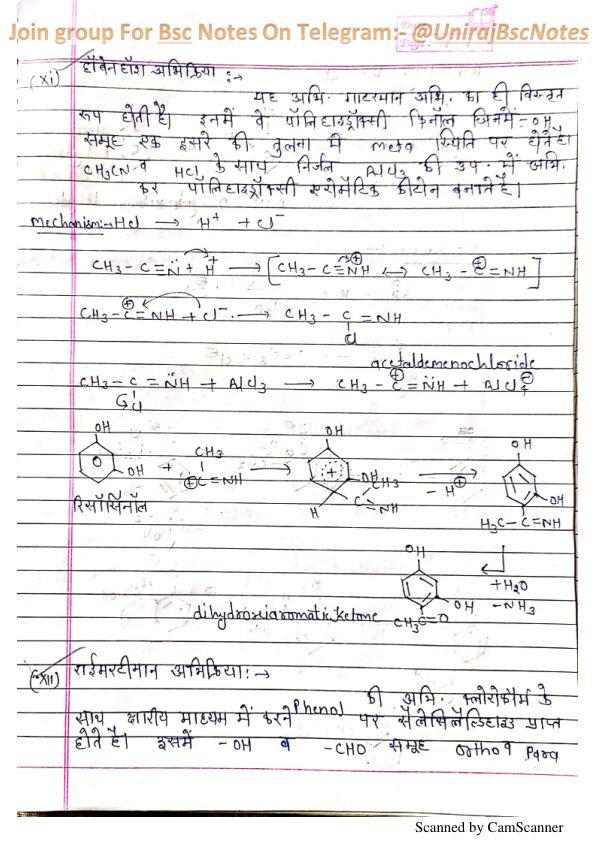 Join group For Bsc Notes On Telegram:- @UnirajBscNotes
(xi) हॉबेन हॉश अभिक्रिया :→
यह अभि. गाटरमान अभि. का ही विस्तृत
रूप होती है। इनमें वे पॉलिहाइड्रॉक्सी फिनॉल जिनमें -OH
समूह एक दूसरे की तुलना में meta स्थिति पर होते है।
CH3CN व HCl के साथ निर्जल AlCl3 की उप. में अभि.
कर पॉलिहाइड्रॉक्सी एरोमैटिक कीटोन बनाते है।
mechanism:→ HCl → H+ + Cl-
CH3-C≡N̈ + H+ → [CH3-C≡N⊕H ↔ CH3-C⊕=NH]
CH3-C⊕=NH + Cl- → CH3-C=NH
Cl
acetaldemenochloride
CH3-C=N̈H + AlCl3 → CH3-C⊕=N̈H + AlCl4⊖
Cl
OH OH OH
OH + CH3 → OH → OH
⊕C=NH CH3 -H⊕
C=NH
H
रिसॉर्सिनॉल H3C-C=NH
OH +H2O
OH -NH3
dihydroxiaromatic ketone CH3C=O
(xii) राईमरटीमान अभिक्रिया:→
Phenol की अभि. क्लोरोफॉर्म के
साथ क्षारीय माध्यम में करने पर सैलेसिलैल्डिहाइड प्राप्त
होते है। इसमें -OH व -CHO समूह ortho व para
Scanned by CamScanner